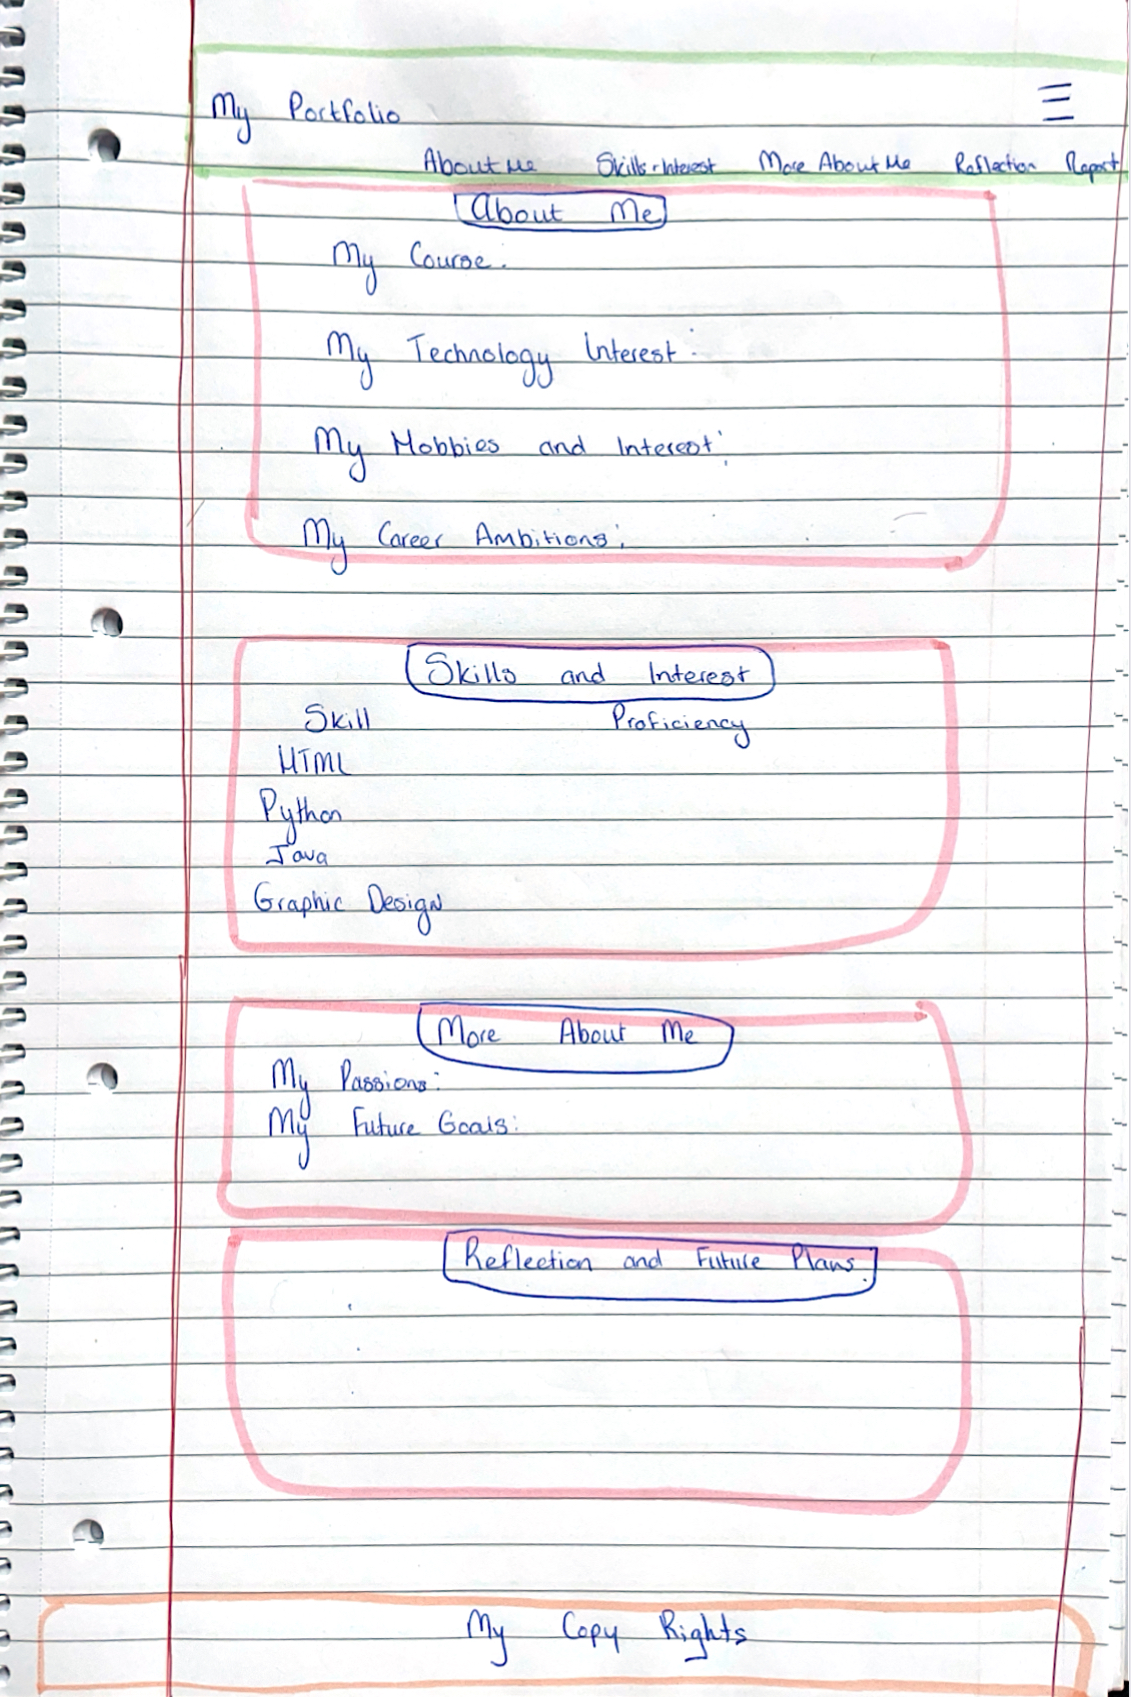 My Portfolio
About Me Skills + Interest More About Me Reflection Report
About Me
My Course:
My Technology Interest:
My Hobbies and Interest:
My Career Ambitions:
Skills and Interest
Skill Proficiency
HTML
Python
Java
Graphic Design
More About Me
My Passions:
My Future Goals:
Reflection and Future Plans
My Copy Rights